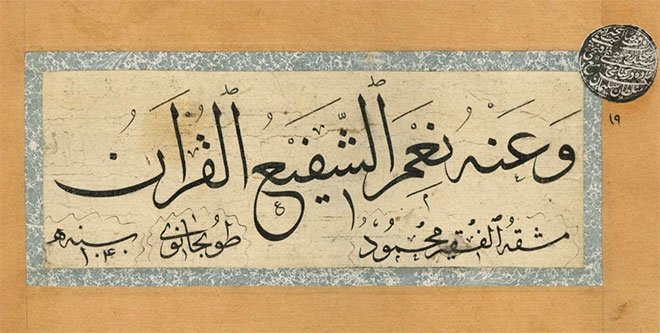 ١٩
وَعَنْهُ نِعْمَ الشَّفِيعُ الْقُرْاٰنُ
مشقه الفقير محمود طوبخانوى سنه ١٠٤٠